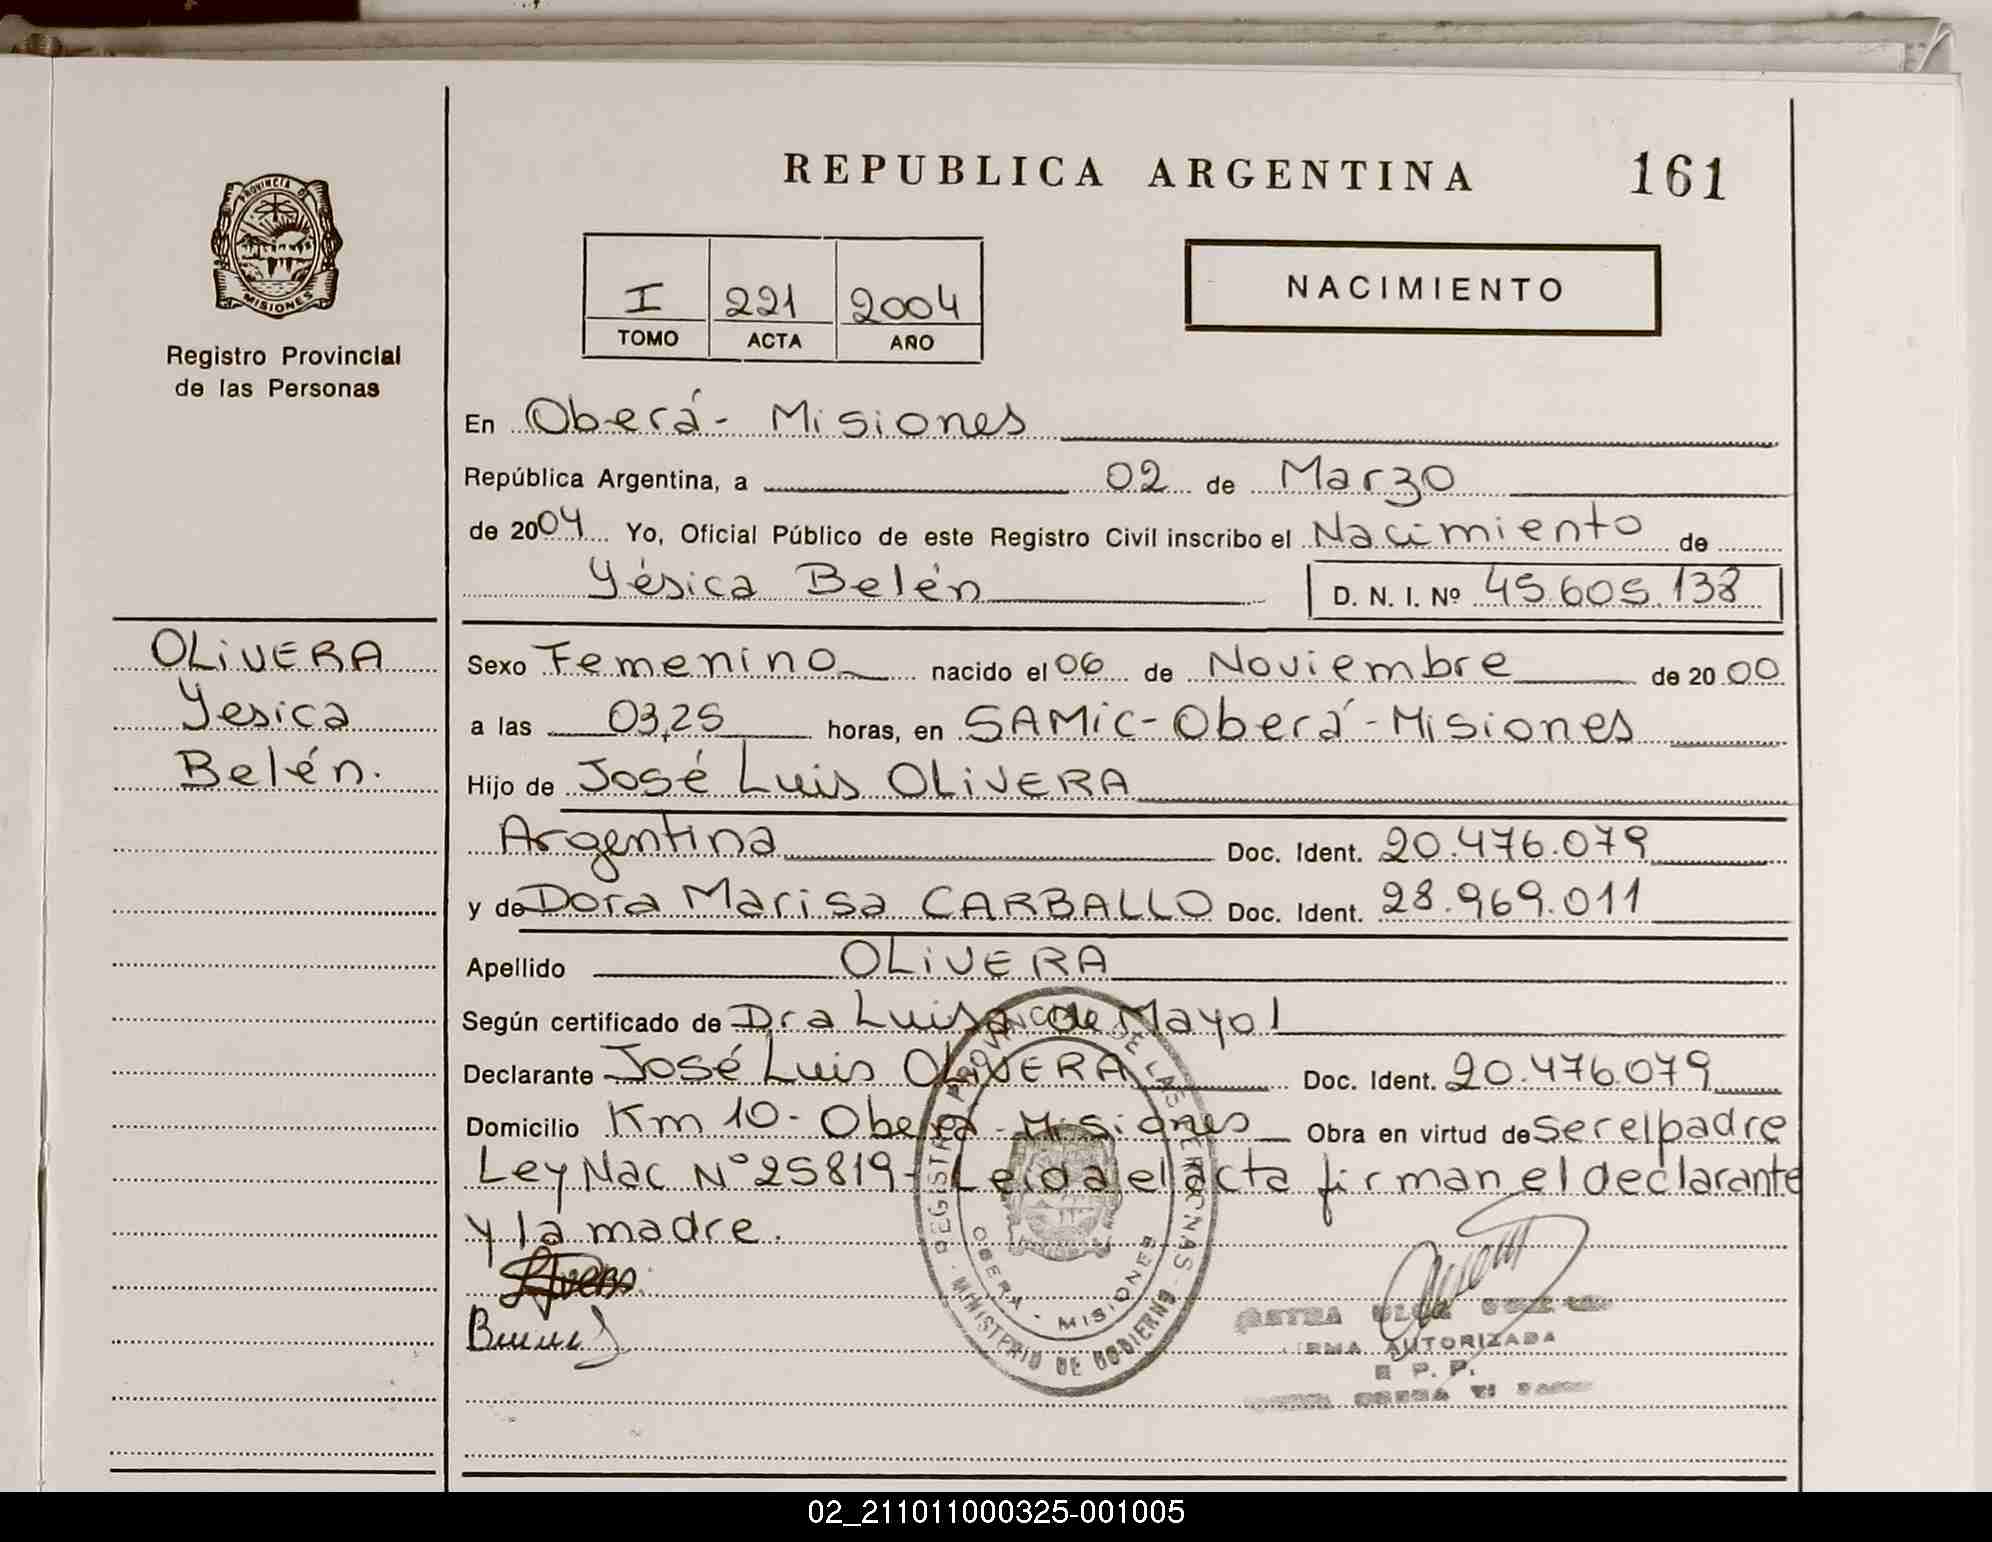 REPUBLICA ARGENTINA
161
PROVINCIA DE
MISIONES
Registro Provincial
de las Personas
I 221 2004
TOMO ACTA AÑO
NACIMIENTO
En Oberá - Misiones
República Argentina, a 02 de Marzo
de 2004 Yo, Oficial Público de este Registro Civil inscribo el Nacimiento de
Yésica Belén D. N. I. Nº 45.605.138
OLiVERA
Yesica
Belén.
Sexo Femenino nacido el 06 de Noviembre de 2000
a las 03,25 horas, en SAMiC - Oberá - Misiones
Hijo de José Luis OLiVERA
Argentina Doc. Ident. 20.476.079
y de Dora Marisa CARBALLO Doc. Ident. 28.969.011
Apellido OLiVERA
Según certificado de Dra Luisa de Mayol
Declarante José Luis OLiVERA Doc. Ident. 20.476.079
Domicilio Km 10 - Oberá - Misiones Obra en virtud de ser el padre
Ley Nac Nº 25819 - Leida el acta firman el declarante
y la madre.
REGISTRO PROVINCIAL DE LAS PERSONAS - MINISTERIO DE GOBIERNO
OBERA - MISIONES
FIRMA AUTORIZADA
R P. P.
02_211011000325-001005